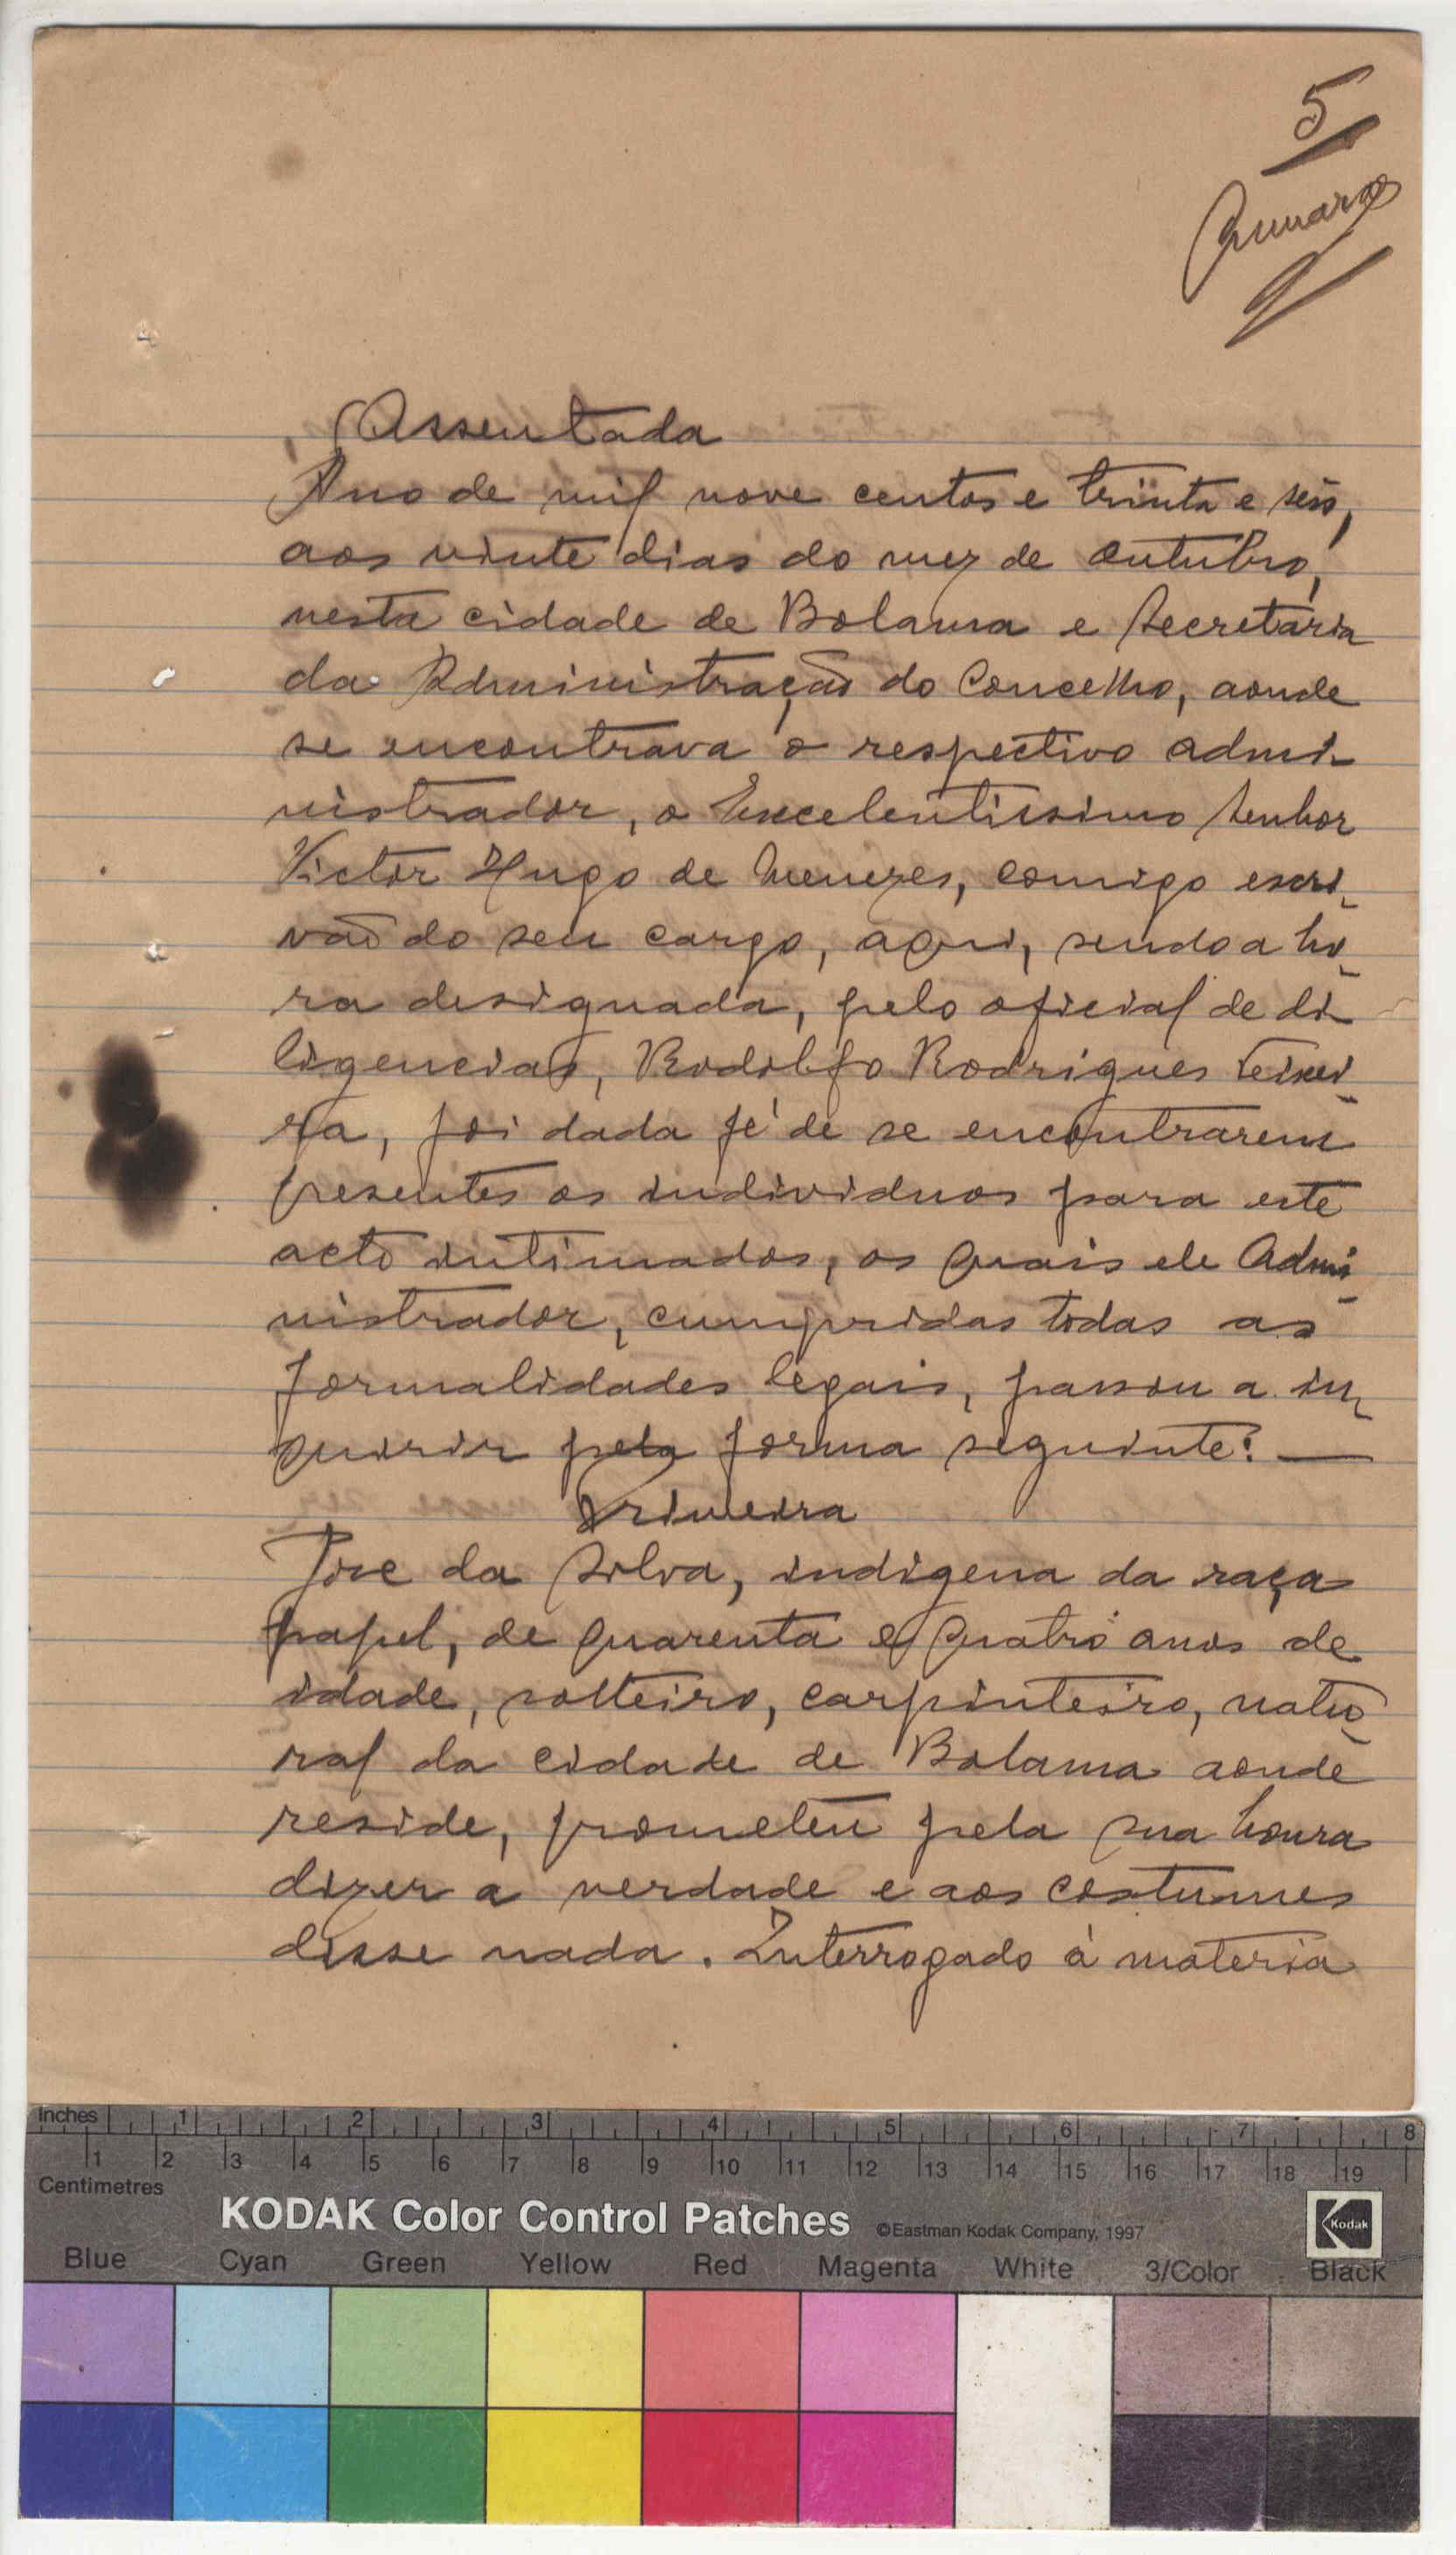 5
Assentada
Ano de mil nove centos e trinta e seis,
aos vinte dias do mez de outubro,
nesta cidade de Bolama e Secretaria
da Administração do Concelho, aonde
se encontrava o respectivo admi-
nistrador, o Excelentissimo Senhor
Victor Hugo de Menezes, comigo escri-
vão do seu cargo, aqui, sendo a ho-
ra designada, pelo oficial de di-
ligencias, Rodolfo Rodrigues Teixei-
ra, foi dada fé de se encontrarem
presentes os individuos para este
acto intimados, os quais ele Admi-
nistrador, cumpridas todas as
formalidades legais, passou a in-
quirir pela forma seguinte: —
Primeira
José da Silva, indigena da raça
papel, de quarenta e quatro anos de
idade, solteiro, carpinteiro, natu-
ral da cidade de Bolama aonde
reside, prometeu pela sua honra
dizer a verdade e aos costumes
disse nada. Interrogado à materia
Inches 1 2 3 4 5 6 7 8
1 2 3 4 5 6 7 8 9 10 11 12 13 14 15 16 17 18 19
Centimetres
KODAK Color Control Patches ©Eastman Kodak Company, 1997 Kodak
Blue Cyan Green Yellow Red Magenta White 3/Color Black